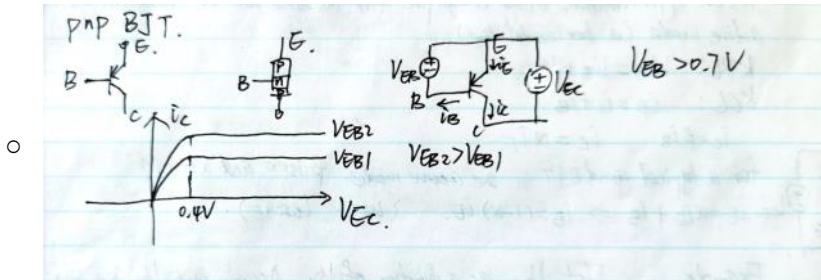 pnp BJT.
E.
B
C
E.
B
P
n
P
E
VEB
iE
VEC
B
iB
iC
C
VEB >0.7V
iC
VEB2
VEB1
VEB2>VEB1
0.4V
VEC.